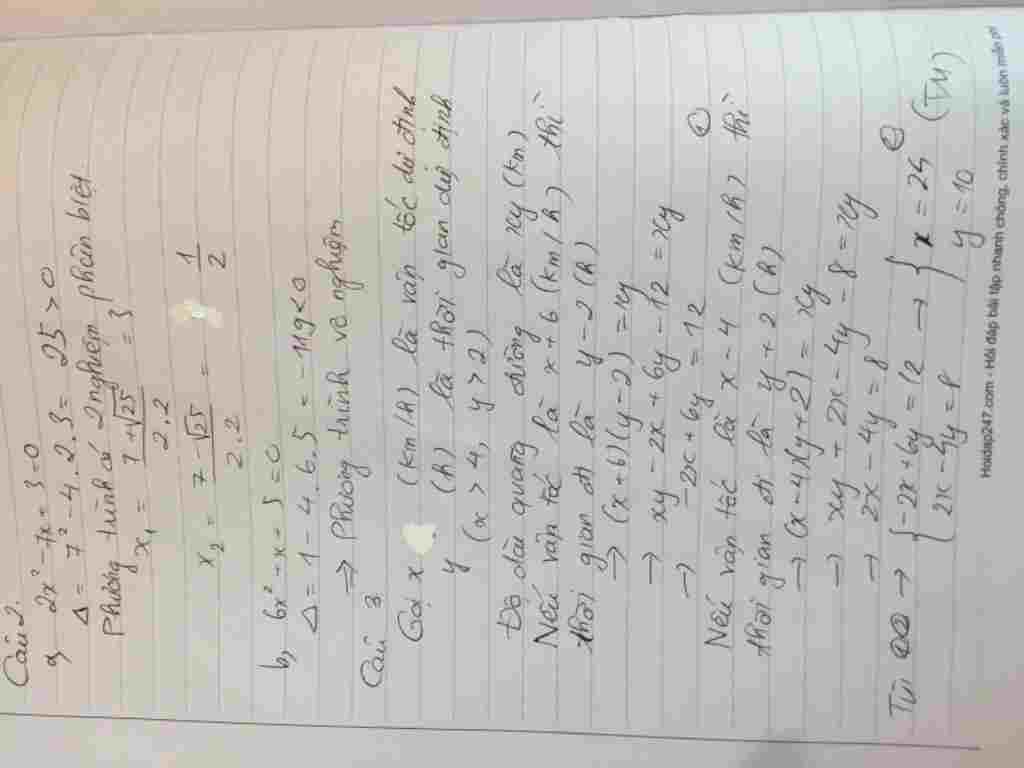 Câu 2.
a, 2x² - 7x + 3 = 0
Δ = 7² - 4.2.3 = 25 > 0
Phương trình có 2 nghiệm phân biệt
x₁ = (7 + √25)/2.2 = 3
x₂ = (7 - √25)/2.2 = 1/2
b, 6x² + x + 5 = 0
Δ = 1 - 4.6.5 = -119 < 0
→ Phương trình vô nghiệm
Câu 3
Gọi x (km/h) là vận tốc dự định
y (h) là thời gian dự định
(x > 4, y > 2)
Độ dài quang đường là xy (km)
Nếu vận tốc là x + 6 (km/h) thì
thời gian đi là y - 2 (h)
→ (x + 6)(y - 2) = xy
→ xy - 2x + 6y - 12 = xy
→ -2x + 6y = 12 ①
Nếu vận tốc là x - 4 (km/h) thì
thời gian đi là y + 2 (h)
→ (x - 4)(y + 2) = xy
→ xy + 2x - 4y - 8 = xy
→ 2x - 4y = 8 ②
Từ ①② → { -2x + 6y = 12 → { x = 24
2x - 4y = 8 y = 10 (TM)
Hoidap247.com - Hỏi đáp bài tập nhanh chóng, chính xác và luôn miễn phí